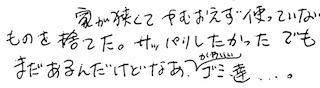 家が狭くてやむおえず使っていない
ものを捨てた。サッパリしたかったでも
まだあるんだけどなあ、かわいいゴミ達...。